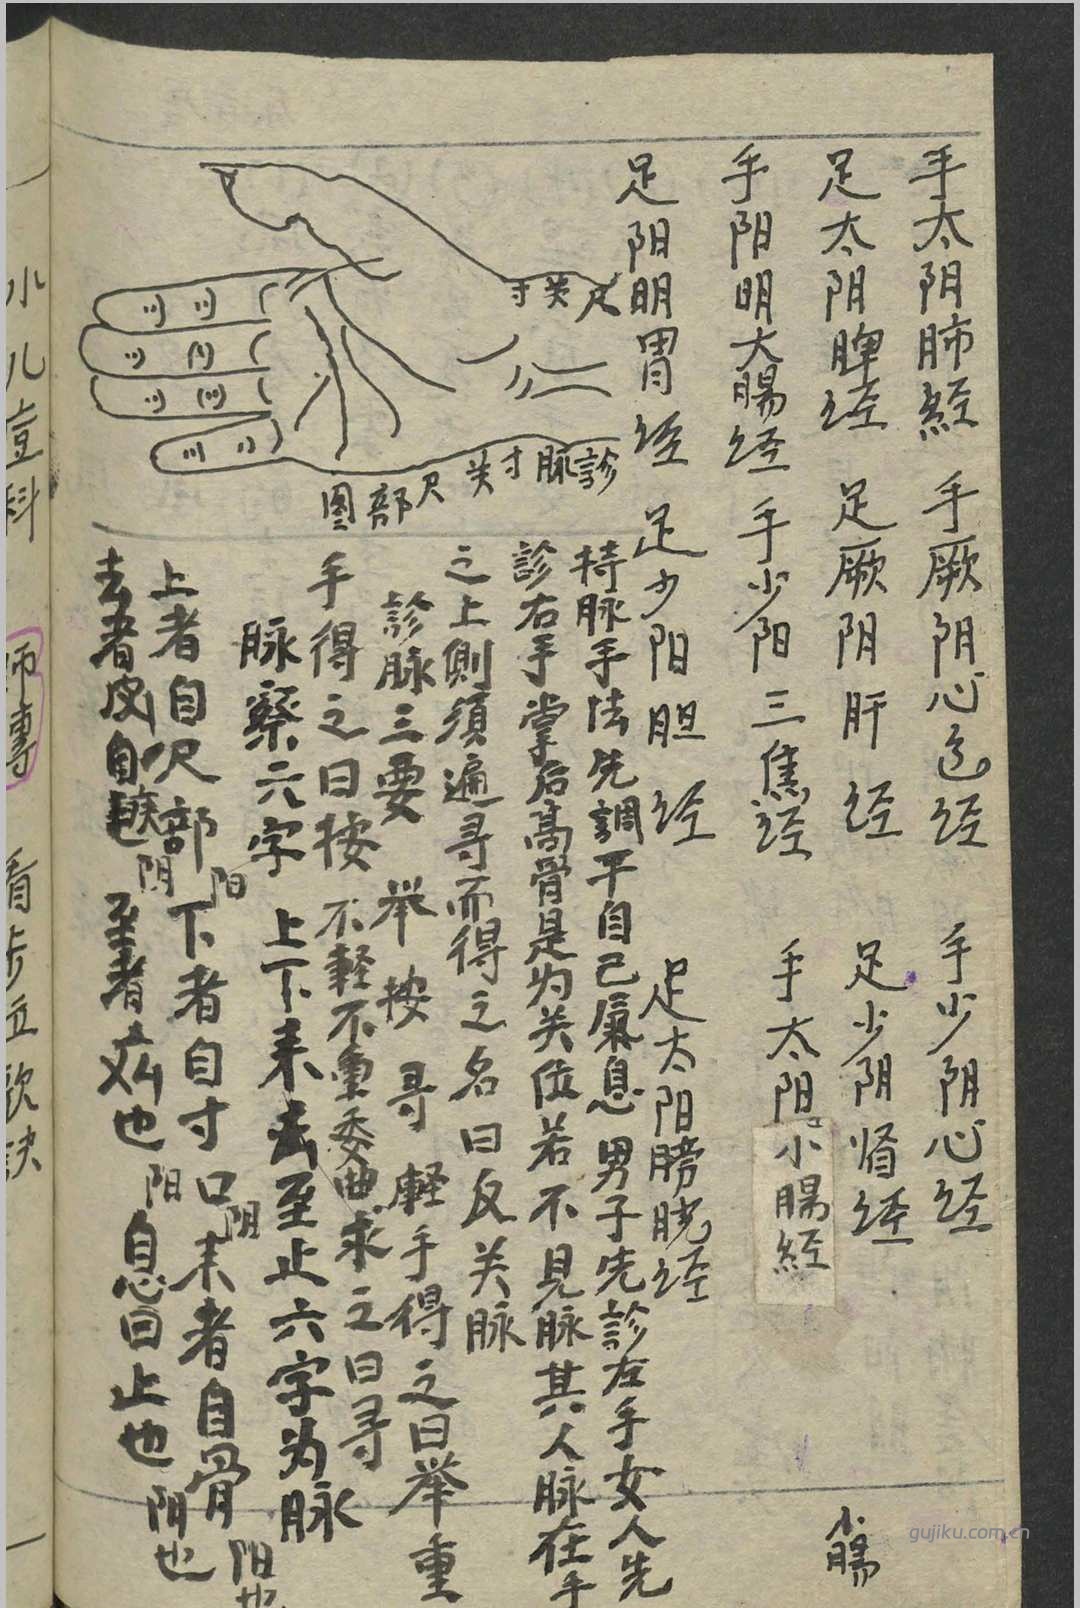 手太阴肺經 手厥阴心包经 手少阴心经
足太阴脾经 足厥阴肝经 足少阴肾经
小腸
手阳明大腸经 手少阳三焦经 手太阳小腸經
足阳明胃经 足少阳胆经 足太阳膀胱经
寸关尺
診脉寸关尺部图
持脉手法先調平自己氣息男子先診左手女人先
診右手掌后高骨是为关位若不見脉其人脉在手
之上側須遍寻而得之名曰反关脉
診脉三要 举按寻 軽手得之曰举重
手得之曰按不軽不重委曲求之曰寻
脉察六字 上下来去至止六字为脉
上者自尺部阳下者自寸口阴来者自骨阳也
去者皮自阴至者病也阳息曰止也阴也
小儿痘科 师傳 看步位歌訣
gujiku.com.cn